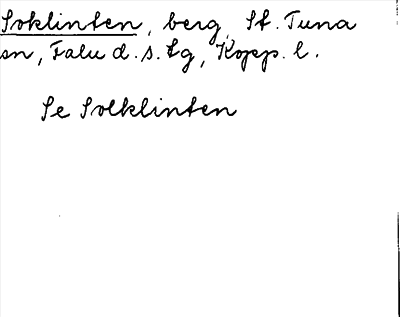 Soklinten, berg, St. Tuna
sn, Falu d.s. tg, Kopp. l.
Se Solklinten